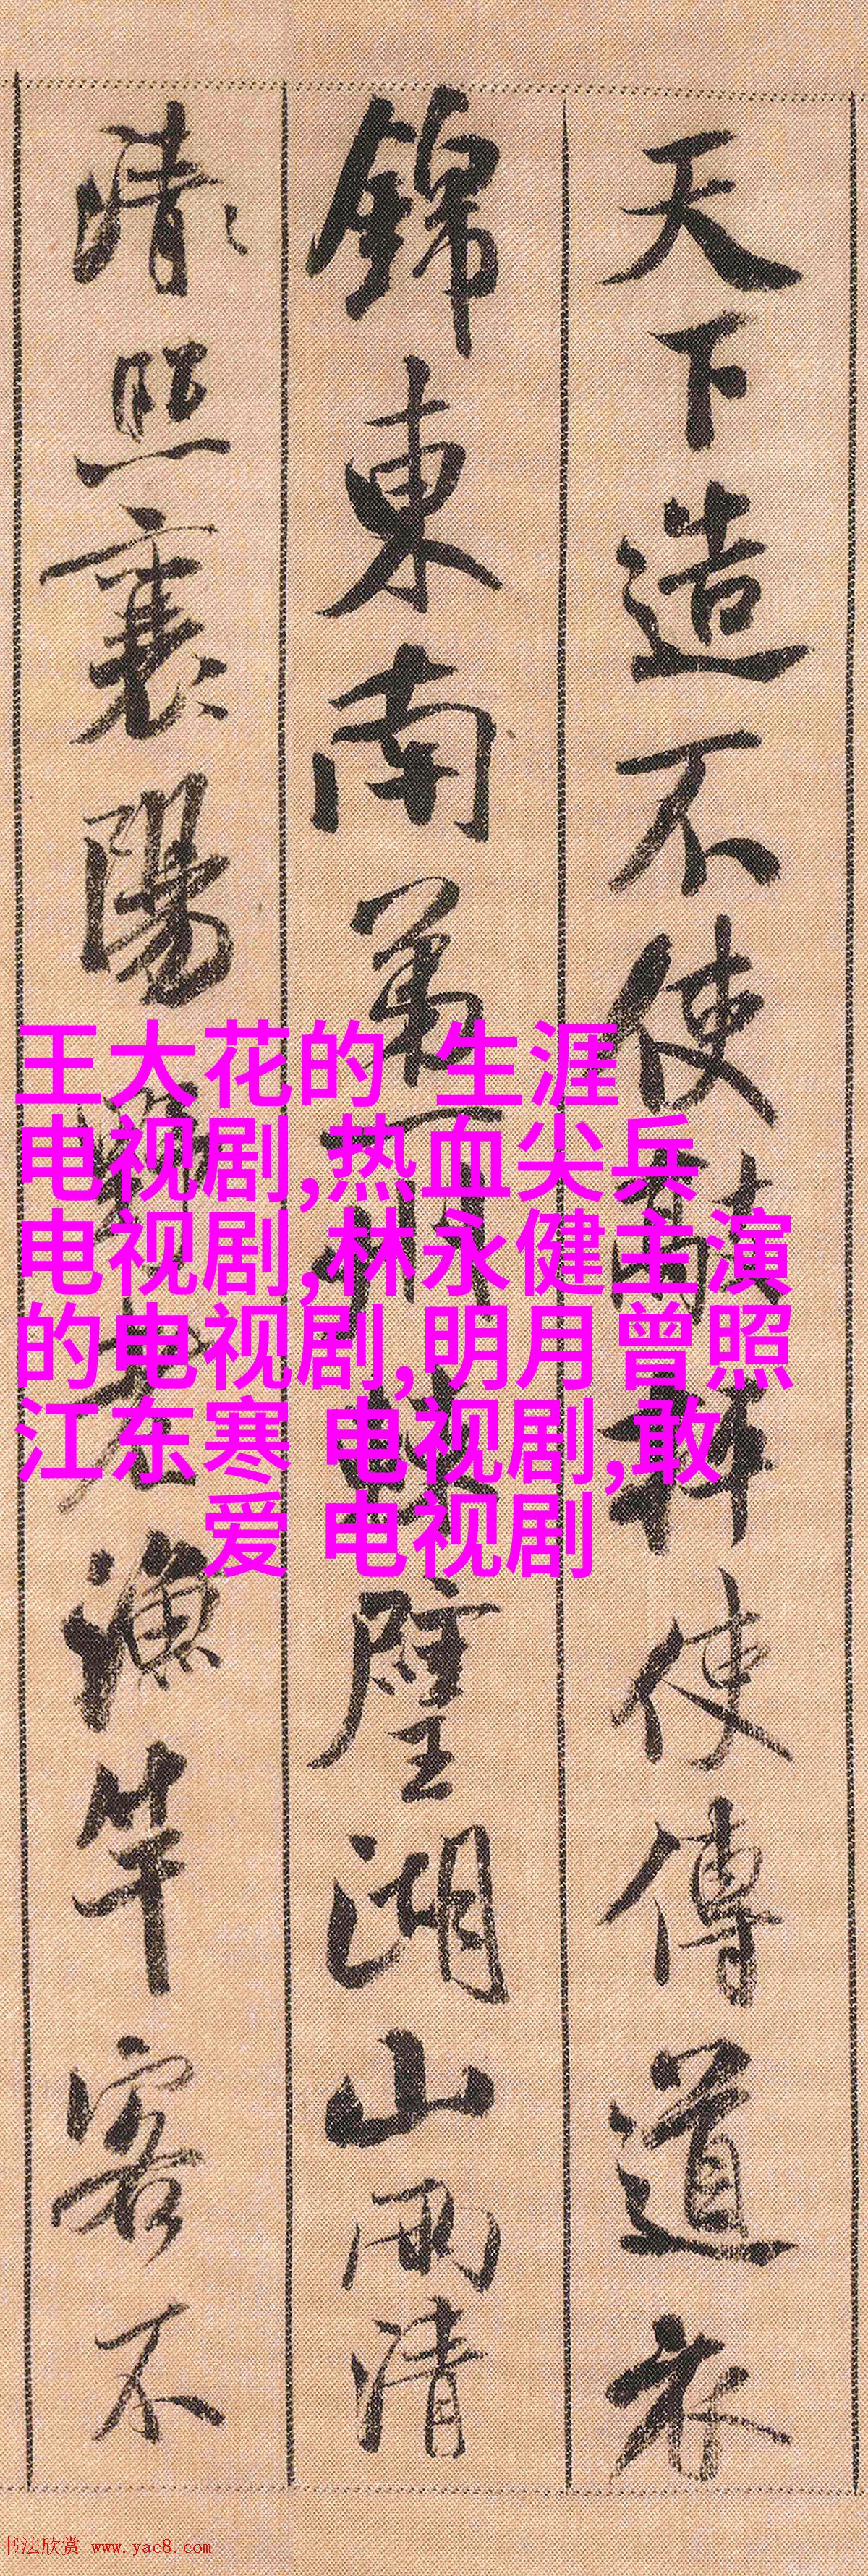 天下造不使敲枰使傳道衣
錦東南第一州棘璧湖山兩清
清照襄陽野老漁竿客不
王大花的 生涯
电视剧,热血尖兵
电视剧,林永健主演
的电视剧,明月曾照
江东寒 电视剧,敢
爱 电视剧
书法欣赏 www.yac8.com